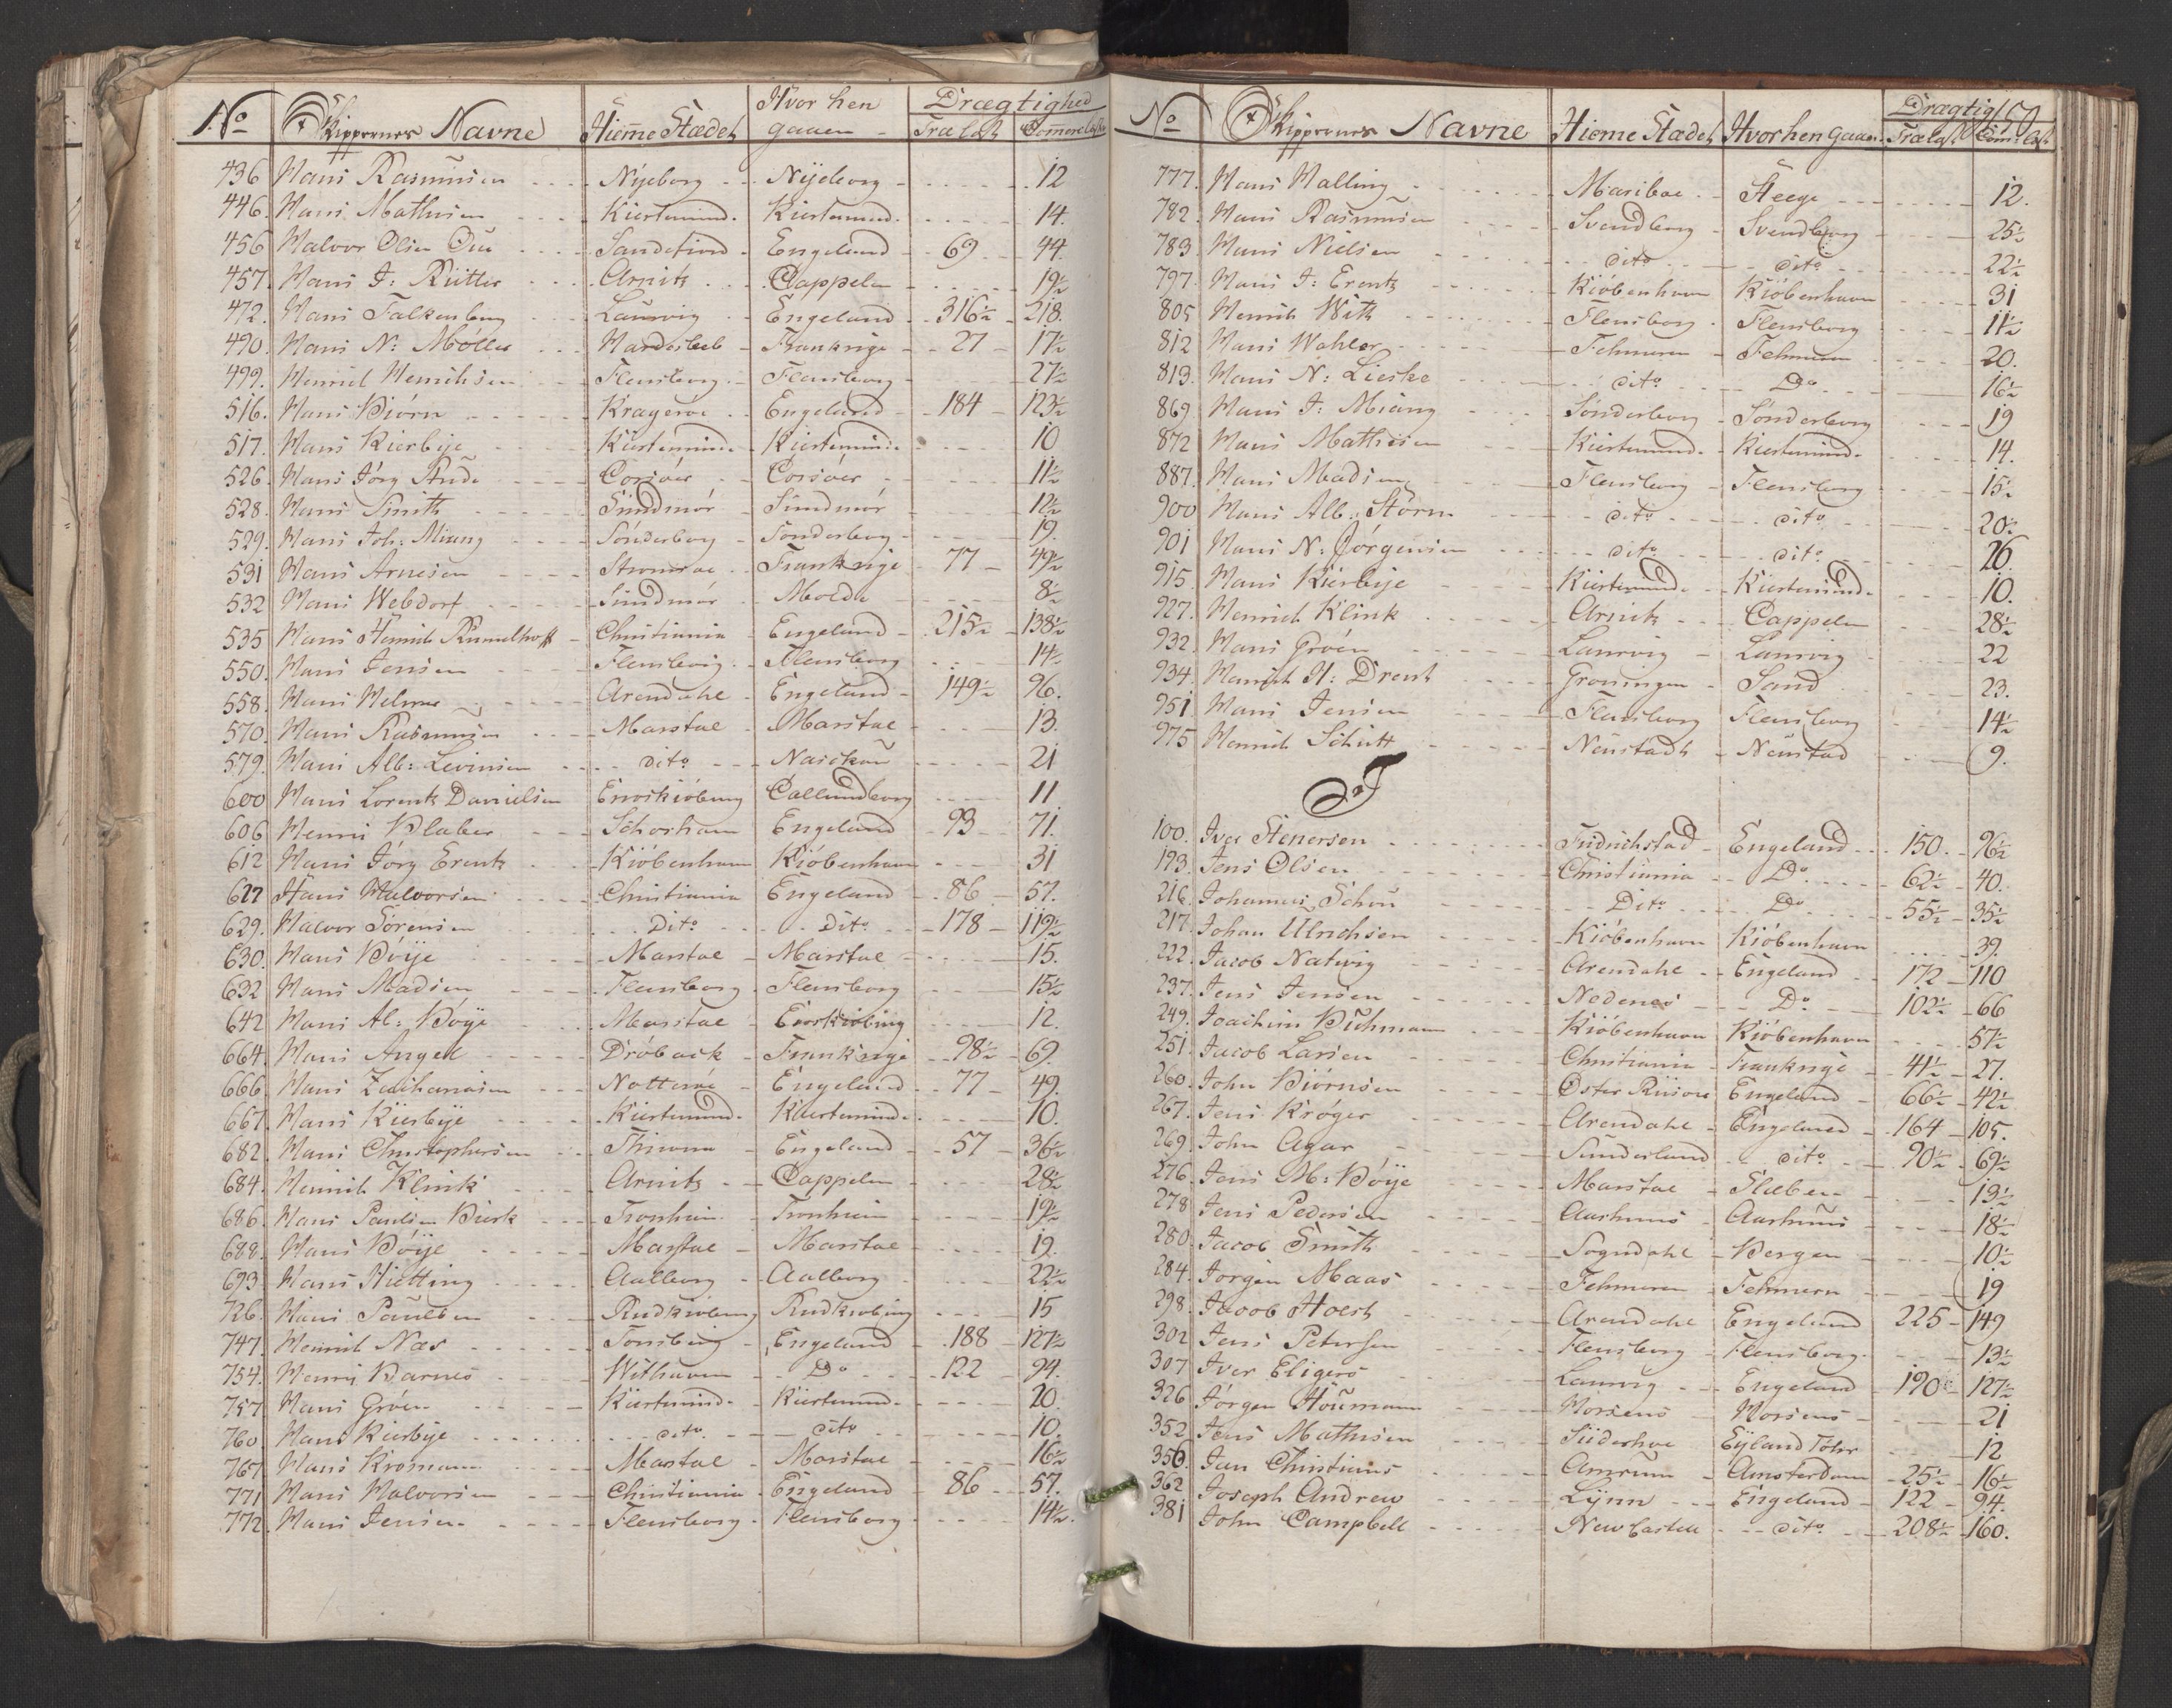 No Skippernes Navne Hiemme Stædet Hvor hen gaaen Drægtighed Trælast Commerelaster
436 Hans Rasmussen Nyeborg Nyeborg 12
446. Hans Mathisen Kierteminde. Kierteminde. 14.
456 Halvor Olsen Sandefiord Engeland 69 44.
457. Hans J: Rütter Arnitz Cappeln 19½
472. Hans Falkenberg Laurvig Engeland 316½ 218.
490. Hans N: Möller Hardersleb Frankrige 27 17½
499. Henrich Henrichsen Flensborg Flensborg 27½
516. Hans Biórn Krageröe Engeland 184 123½
517. Hans Kierbye Kierteminde Kierteminde 10
526. Hans Jörg Corsöer Corsöer 11½
528. Hans Smith Sundmör Sundmör 12½
529. Hans Joh: Miang Sönderborg Sonderborg 19.
531 Hans Arnesen Stromsoe Frankrige 77 49½
532 Hans Webdorf Sundmör Molde 8½
535 Hans Henrich Rummelhoff Christiania Engeland 215½ 138½
550. Hans Jensen Flensborg Flensborg 14½
558. Hans Helmer Arendahl Engeland 149½ 96.
570. Hans Rasmussen Marstal Marstal 13.
579. Hans Alb: Levinsen dito Nasckou 21
600 Hans Lorentz Danielsen Eroskiöbing Callundborg 11
606 Henry Blaber Schorham Engeland 93 71.
612 Hans Jörg Erentz Kiöbenhavn Kiöbenhavn 31
627 Hans Halvorsen Christiania Engeland 86 57.
629. Halvor Sörensen Dito Dito 178 119½
630. Hans Böÿe Marstal Marstal 15.
632 Hans Madsen Flensborg Flensborg 15½
642 Hans Al: Böye Marstal Eroskiöbing 12.
664. Hans Angel Dröback Frankrige 98½ 69.
666. Hans Zachariasen Notteröe Engeland 77 49.
667. Hans Kierbye Kierteminde. Kierteminde. 10.
682. Hans Christophersen Engeland 57 36½
684. Heinrich Klink Arnitz Cappeln 28½
686. Hans Paulsen Birk Tronhiem Tronhiem 19½
688. Hans Böÿe Marstal Marstal 19.
693 Hans Hietting Aalborg Aalborg 22½
726. Hans Paulsen Rudkiobing Rudkiobing 15
747. Heinrich Næs Tonsberg Engeland 188 127½
754. Henry Barnes Withaven Do 122 94.
757. Hans Gröen Kierteminde. Kierteminde. 20.
760. Hans Kierbye dito dito 10.
767. Hans Kromann Marstal Marstal 16½
771 Hans Halvorsen Christiania Engeland 86 57.
772. Hans Jensen Flensborg Flensborg 14½
No Skippernes Navne Hieme Stædet Hvorhen gaaen Drægtigh Trælast Com: last
777. Hans Halling Mariboe Steege 12.
782. Hans Rasmussen Svendborg Svendborg 25½
783. Hans Nielsen dito dito 22½
797. Hans J: Erentz Kiöbenhavn Kiöbenhavn 31
805 Henrich With Flensborg Flensborg 11½
812 Hans Wahler Fehmern Fehmern 20.
813. Hans N: Lieske dito Do 16½
869. Hans J: Miang Sönderborg Sönderborg 19
872 Hans Mathisen Kierteminde. Kierteminde. 14.
887. Hans Madsen Flensborg Flensborg 15½
900 Hans Alb: Störm dito dito 20½
901 Hans N: Jörgensen dito dito 26.
915. Hans Kierbye Kierteminde. Kierteminde. 10.
927. Henrich Klink Arnitz Cappeln 28½
932. Hans Gröen Laurvig Laurvig 22
934. Henrich H: Drent Groningen Sand 23.
951. Hans Jensen Flensborg Flensborg 14½
975 Henrich Schütt Neustadt Neustad 9.
J
100. Iver Stenersen Fridrichstad Engeland 150. 96½
193. Jens Olsen Christiania Do 62½ 40.
216. Johannes Schou Dito Do 55½ 35½
217. Johan Ulrichsen Kiöbenhavn Kiöbenhavn 39.
222. Jacob Natwig Arendahl Engeland 172 110
237. Jens Jensen Nedenes Do 102½ 66
249. Joachim Bichmann Kiöbenhavn Kiöbenhavn 57½
251. Jacob Larsen Christiania Frankrige 41½ 27.
260. John Biörnsen Öster Riisöer Engeland 66½ 42½
267. Jens Kröger Arendahl Engeland 164 105.
269. John Agar Sunderland dito 90½ 69½
276. Jens M: Böÿe Marstal 13½
278 Jens Pedersen Aarhuus Aarhuus 18½
280. Jacob Smith Sogndahl Bergen 10½
284. Jorgen Maas Fehmern Fehmern 19
298. Jacob Holst Arendahl Engeland 225 149
302 Jens Petersen Flensborg Flensborg 13½
307 Iver Eligers Laurvig Engeland 190½ 127½
326 Jörgen Houmann Horsens Horsens 21
352 Jens Mathisen Süderhoe Eÿland Föhr 12
356. Jan Christians Amrum Amsterdam 25½ 16½
362 Joseph Andrew Lynn Engeland 122 94.
381 John Campbell New Castell dito 208½ 160.